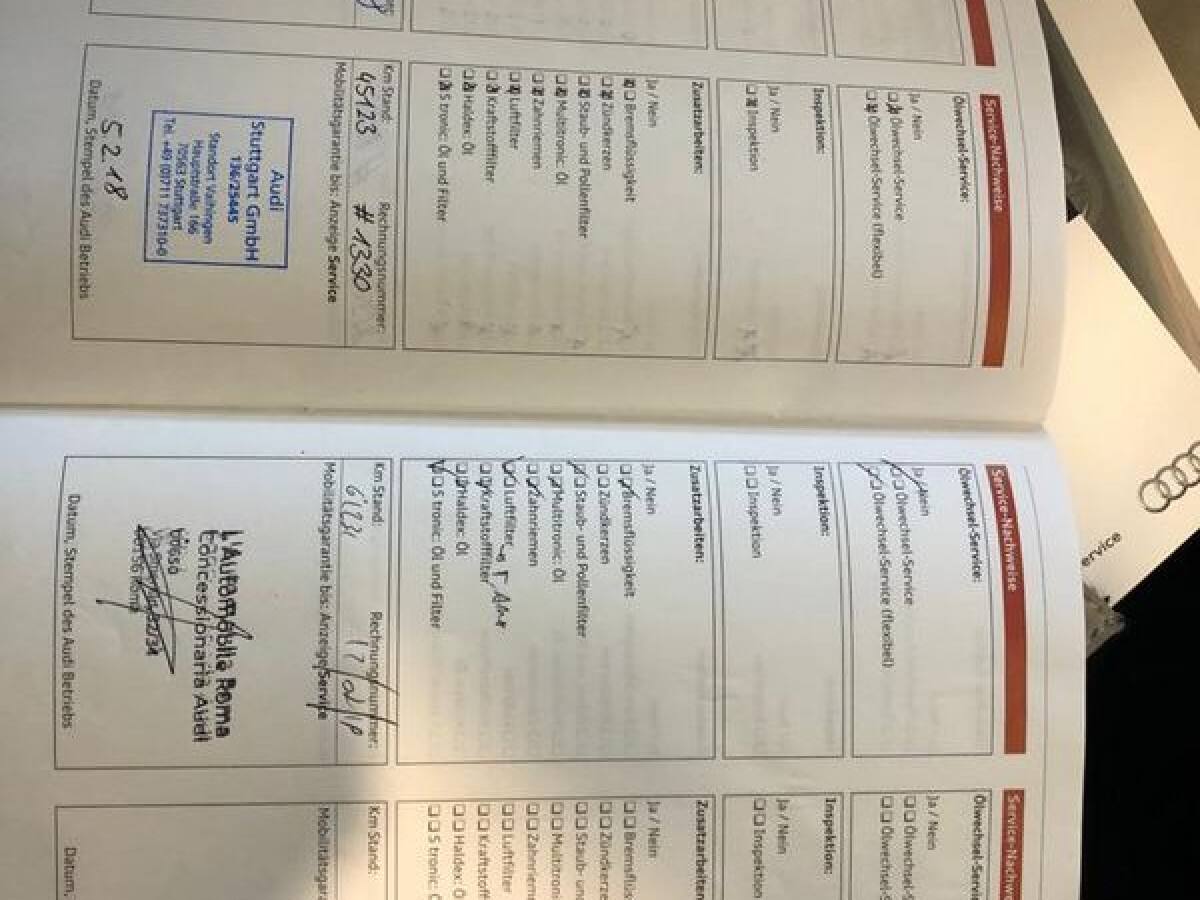 Service-Nachweise
Ölwechsel-Service:
Ja / Nein
Ölwechsel-Service
Ölwechsel-Service (flexibel)
Inspektion:
Ja / Nein
Inspektion
Zusatzarbeiten:
Ja / Nein
Bremsflüssigkeit
Zündkerzen
Staub- und Pollenfilter
Multitronic: Öl
Zahnriemen
Luftfilter
Kraftstofffilter
Haldex: Öl
S tronic: Öl und Filter
Km Stand: Rechnungsnummer:
45123 #1330
Mobilitätsgarantie bis: Anzeige Service
Audi
Stuttgart GmbH
136/25445
Standort Vaihingen
Hauptstraße 166
70563 Stuttgart
Tel. +49 (0)711 737310-0
5 2.18
Datum, Stempel des Audi Betriebs
Service-Nachweise
Ölwechsel-Service:
Ja / Nein
Ölwechsel-Service
Ölwechsel-Service (flexibel)
Inspektion:
Ja / Nein
Inspektion
Zusatzarbeiten:
Ja / Nein
Bremsflüssigkeit
Zündkerzen
Staub- und Pollenfilter
Multitronic: Öl
Zahnriemen
Luftfilter
Kraftstofffilter
Haldex: Öl
S tronic: Öl und Filter
Km Stand: Rechnungsnummer:
Mobilitätsgarantie bis: Anzeige Service
L'Automobile Roma
Concessionaria Audi
Datum, Stempel des Audi Betriebs
Service-Nachwe
Ölwechsel-Servic
Ja / Nein
Ölwechsel-S
Ölwechsel-S
Inspektion:
Ja / Nein
Inspektion
Zusatzarbeiten
Ja / Nein
Bremsflüs
Zündkerze
Staub- un
Multitroni
Zahnriem
Luftfilter
Kraftstoff
Haldex: Ö
S tronic: Ö
Km Stand:
Mobilitätsgara
Datum,
ervice